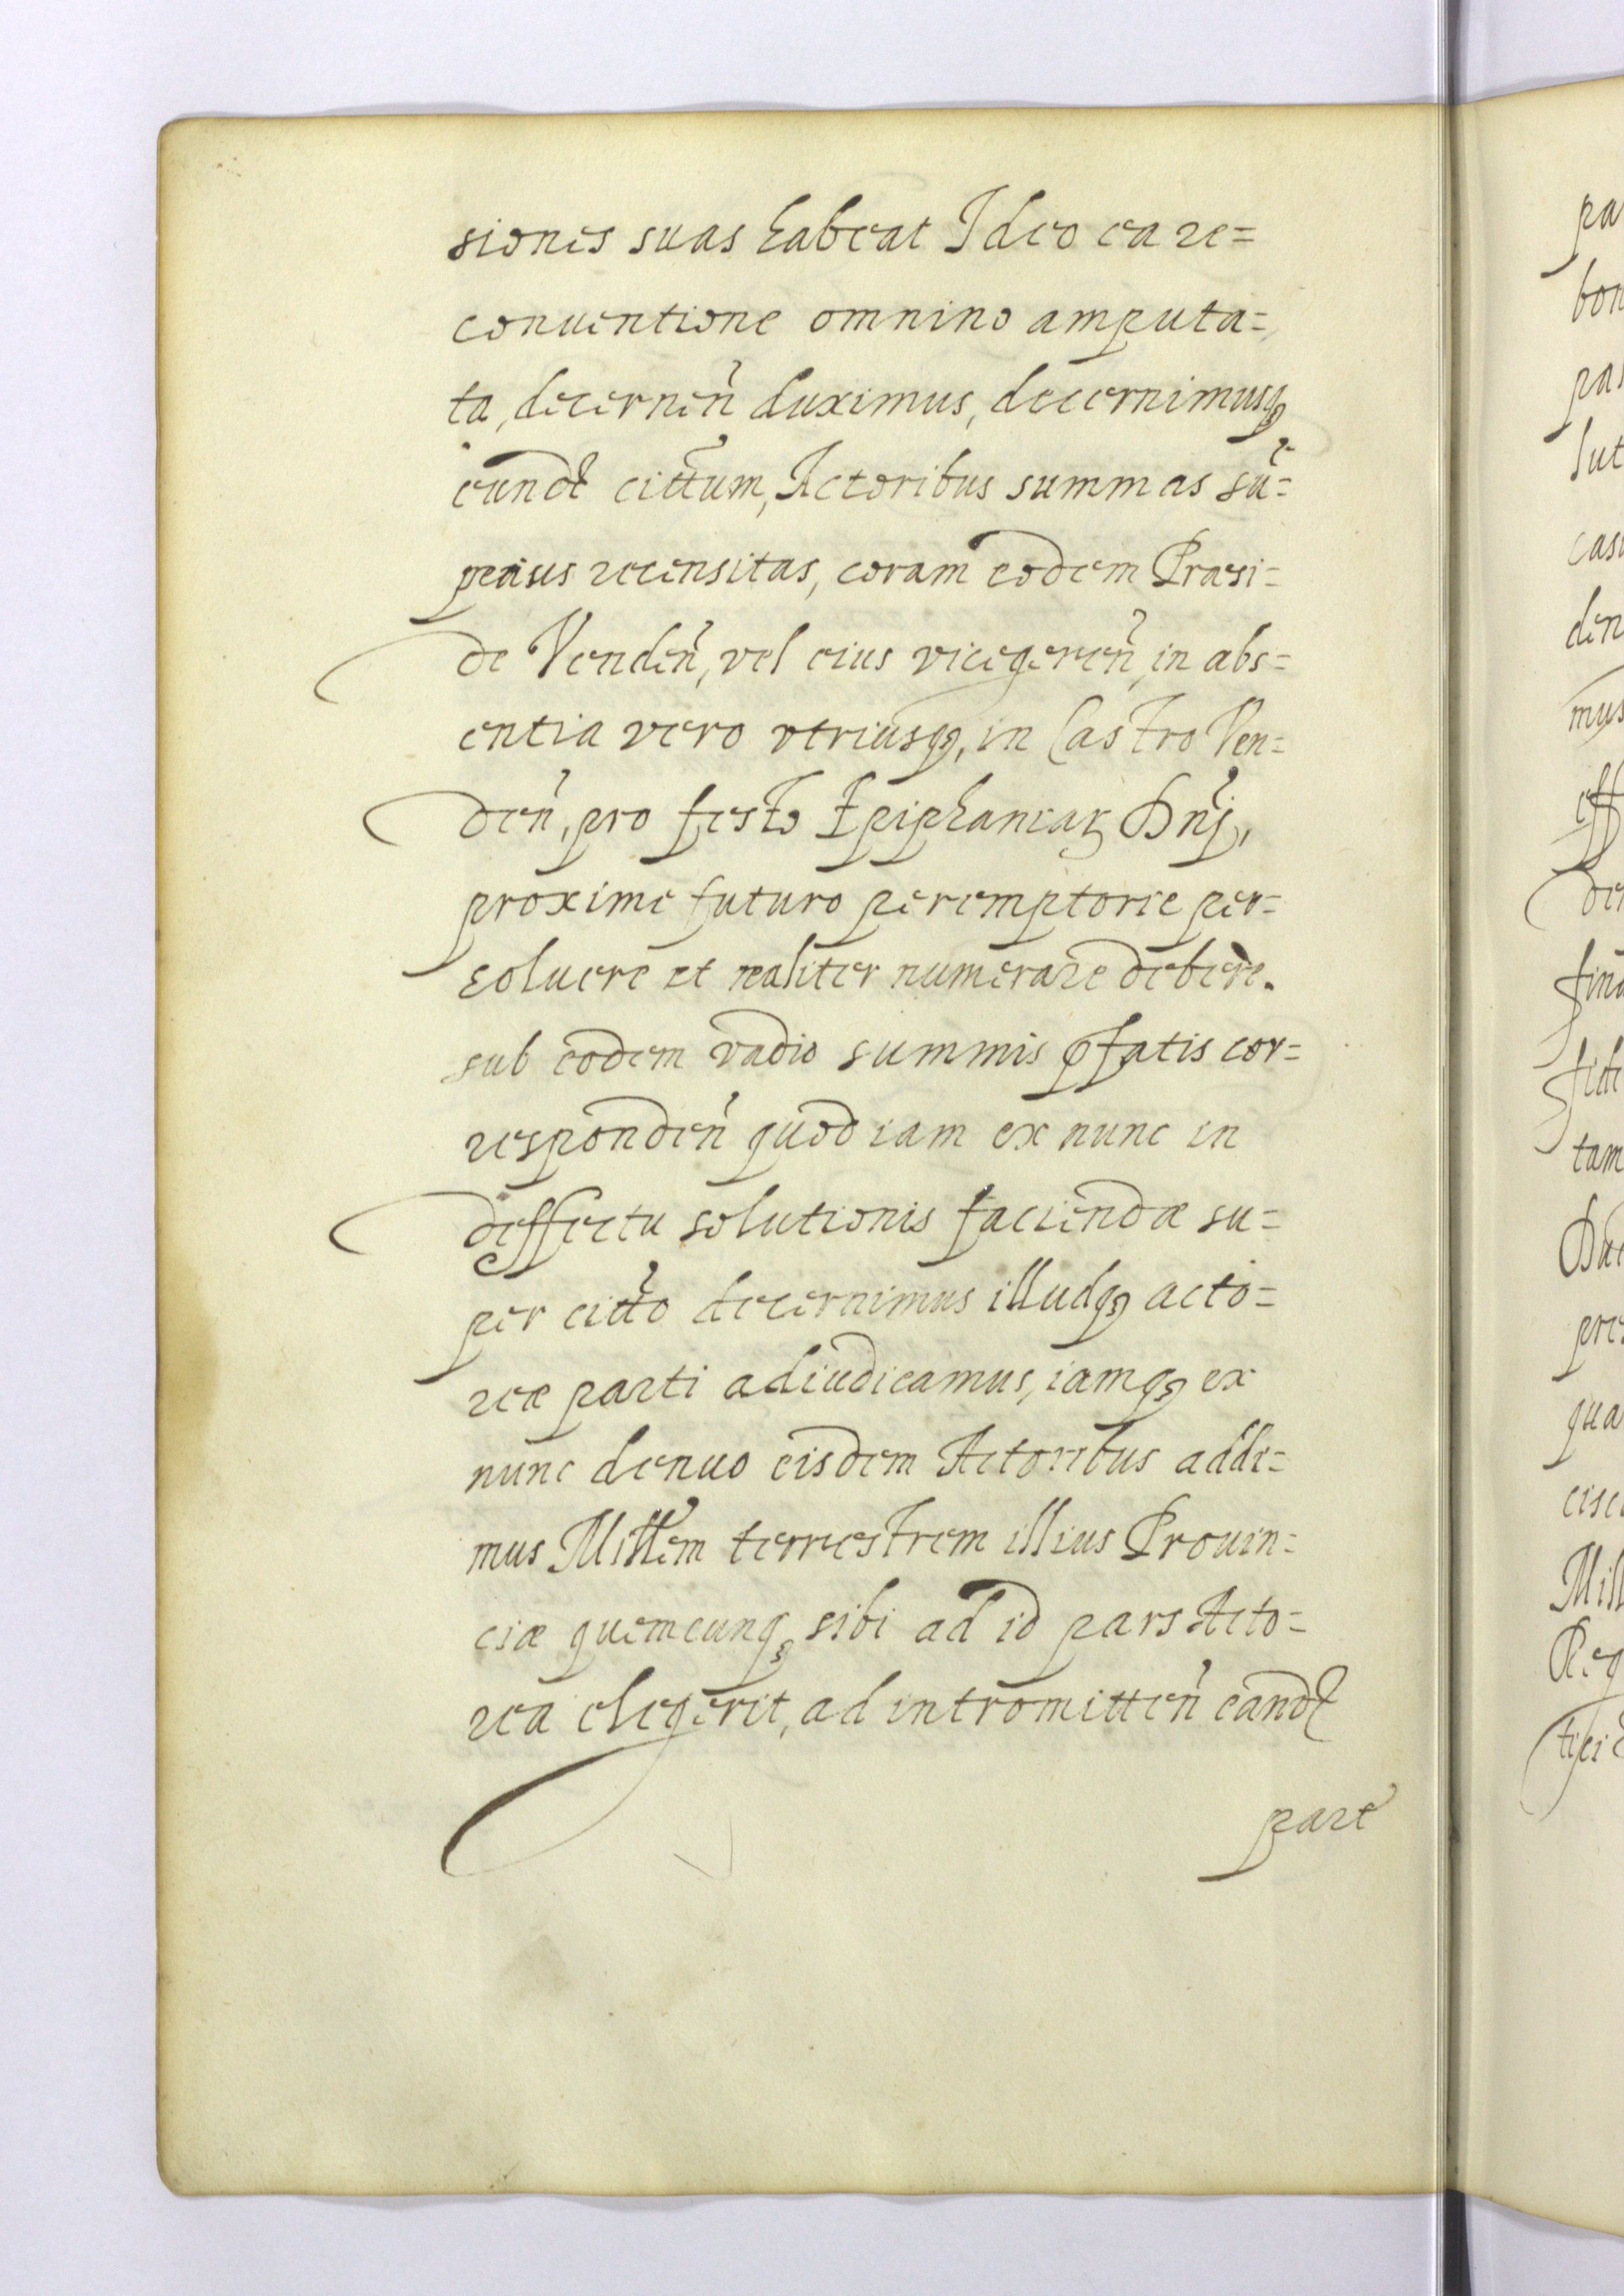 siones suas habeat Ideo ea re=
conuentione omnino amputa=
ta, decernen̄ duximus, decernimusq₃
eund̄ cittum, Actoribus summas su=
perius recensitas, coram eodem Præsi=
de Venden̄, vel eius vicegeren̄, in abs=
entia vero vtriusq₃, in Castro Ven=
den̄, pro festo Epiphaniar Dn̄j,
proxime futuro peremptorie per=
soluere et realiter numerare debere.
sub eodem vadio summis p̄fatis cor=
responden̄ quod iam ex nunc in
deffectu solutionis faciendæ su=
per citto decernimus illudq₃ acto=
reæ parti adiudicamus, iamq₃ ex
nunc denuo eisdem Actoribus addi=
mus Millem terrestrem illius Prouin=
ciæ quemcunq₃ sibi ad id pars Acto=
rea elegerit, ad intromitten̄ eand̄
parte
pa
bon
pas
lut
cas
den
mus
eff
de
fina
fide
tam
Du
pre
qua
cisc
Mill
Reg